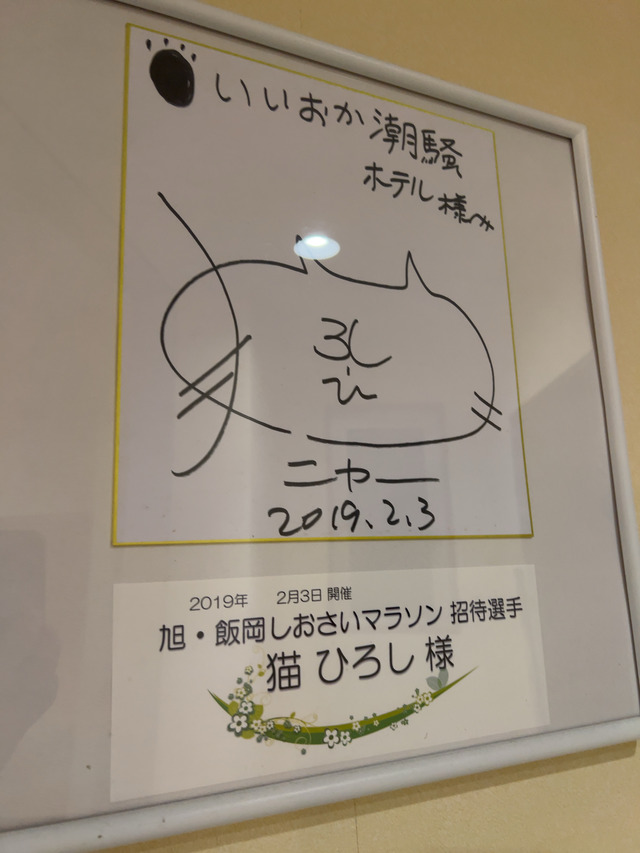 いいおか潮騒
ホテル様へ
ろし
ひ
ニャー
2019.2.3
2019年 2月3日 開催
旭・飯岡しおさいマラソン 招待選手
猫 ひろし 様